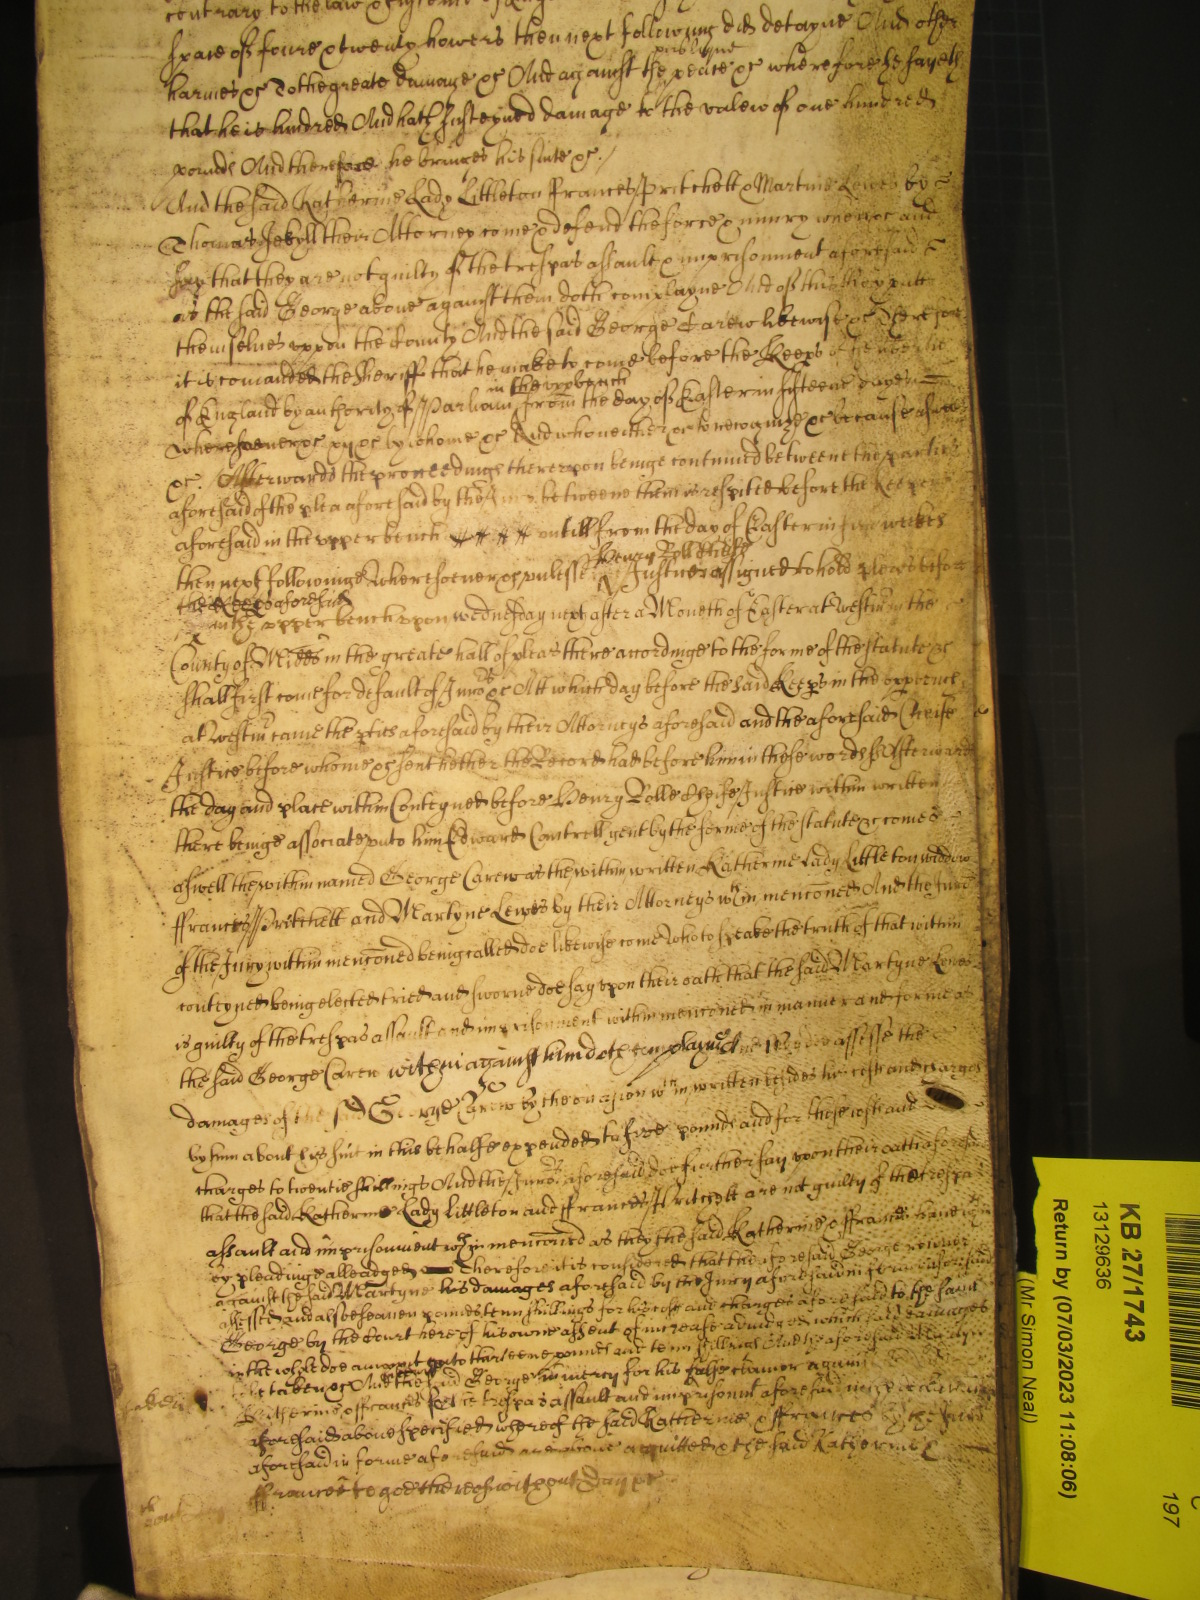 contrary to the law
space of foure & twenty howers then next following did detayne And other
harmes &c To the great damage &c And against the publique peace &c wherefore he sayeth
that he is hindred And hath susteyned damage to the valew of one hundred
pounds And therefore he bringes his suite &c./
And the said Katherine Lady Littleton Frances Pritchett & Martine Lewes by
Thomas Jekyll their Attorney come & defend the force & iniury when &c and
say that they are not guilty of the trespas assault & imprisonment aforesaid
as the said George above against them doth complayne And of this they putt
themselves vppon the County And the said George Carew likewise &c Therefore
it is comanded the Sheriff that he make to come before the Keeps of the
of England by authority of Parliam in the vpp bench from the day of Easter in fifteene dayes
wheresoever &c xij &c by whome &c And who neither &c to recognize &c because aswell
&c. Afterwards the proceedings therevpon beinge continued betweene the parties
aforesaid of the plea aforesaid by the Jury betweene them is respited before the Keepers
aforesaid in the vpper bench vntill from the day of Easter in five weekes
then next followinge wheresoever &c vnlesse Henry Rolle Cheife Justice assigned to hold pleas before
the Keeps aforesaid
in the vpper bench vpon wednesday next after a Moneth of Easter at Westm in the
County of Midds in the greate hall of pleas there accordinge to the forme of the statute &c
shall first come for default of Jurors &c Att which day before the said Keeps in the vpper bench
at Westm came the pties aforesaid by their Attorneys aforesaid and the aforesaid Cheife
Justice before whome &c sent hether the Record had before him in these words ss Afterwards
the day and place within Conteyned before Henry Rolle Cheife Justice within written
there beinge associate vnto him Edward Cantrell gent by the forme of the statute &c comes
aswell the within named George Carew as the within written Katherine Lady Littleton widdow
Frances Pritchett and Martyne Lewes by their Attorneys wthin menconed And the Jurors
of the Jury within menconed being called doe likewise come who to speake the truth of that within
conteyned being elected tried and sworne doe say vpon their oath that the said Martyne Lewes
is guilty of the trespas assault and imprisonment within menconed in manner and forme as
the said George Carew within against him doth complayne And they doe assesse the
damages of the said George Carew by the occasion wthin written besides his costs and charges
by him about his suit in this behalfe expended to five pounds and for those costs and
charges to twentie shillings And the Jurors aforesaid doe further say vpon their oath aforesaid
that the said Katherine Lady Littleton and Frances Pritchett are not guilty of the trespas
assault and imprisonment wthin menconed as they the said Katherine & Frances have within
by pleadinge alleadged Therefore it is considered that the aforesaid George recover
against the said Martyne his damages aforesaid by the Jury aforesaid in forme aforesaid
assessed and alsoe seaven pounds tenn shillings for his costs and charges aforesaid to the same
George by the Court here of his owne assent of increase adiudged which said damages
in the whole doe amount vnto thirteene pounds and tenn shillings And the aforesaid Martyne
be taken &c And the said George in mercy for his false clamor against
Katherine & Frances for the trespas assault and imprisonmt aforesaid
aforesaid above specified whereof the said Katherine & Frances by the Jury
aforesaid in forme aforesaid are above acquitted & the said Katherine &
Frances to goe thereof without day &c
KB 27/1743
13129636
Return by (07/03/2023 11:08:06)
(Mr Simon Neal)
C
197